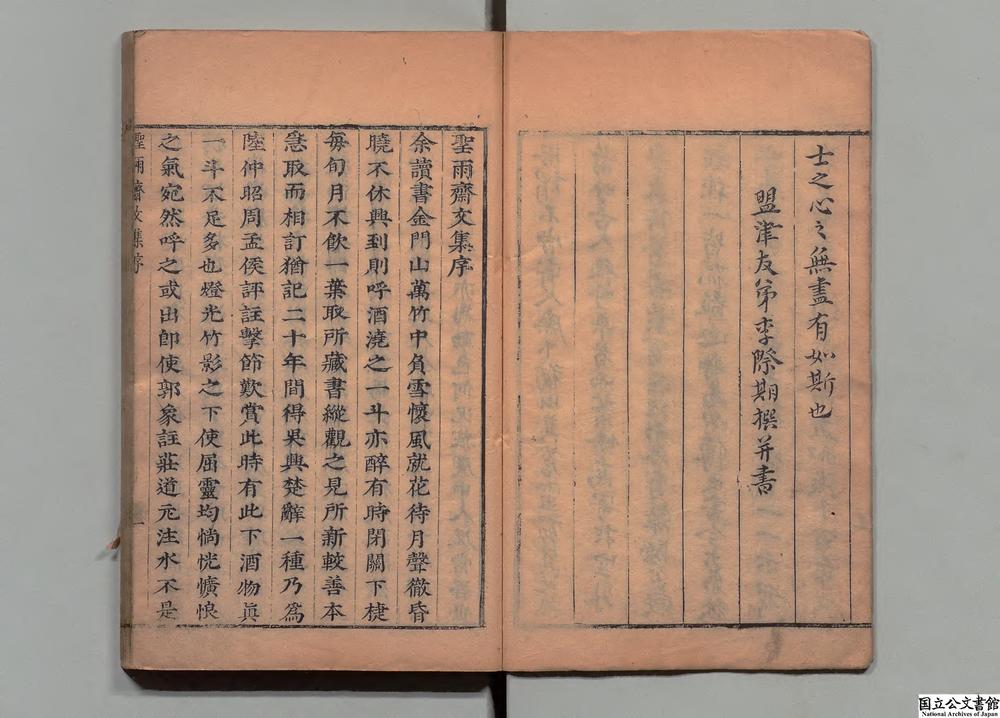 士之心之無盡有如斯也
盟津友弟李際期撰并書
聖雨齋文集序
余讀書金門山萬竹中負雪懷風就花待月聲徹昏
曉不休興到則呼酒澆之一斗亦醉有時閉關下楗
每旬月不飲一葉取所藏書縱觀之見所新較善本
急取而相訂猶記二十年間得吳興楚辭一種乃為
陸仲昭周孟侯評註擊節歎賞此時有此下酒物真
一斗不足多也燈光竹影之下使屈靈均惝恍懭悢
之氣宛然呼之或出即使郭象註莊道元注水不是
聖雨齋文集序
一
国立公文書館
National Archives of Japan